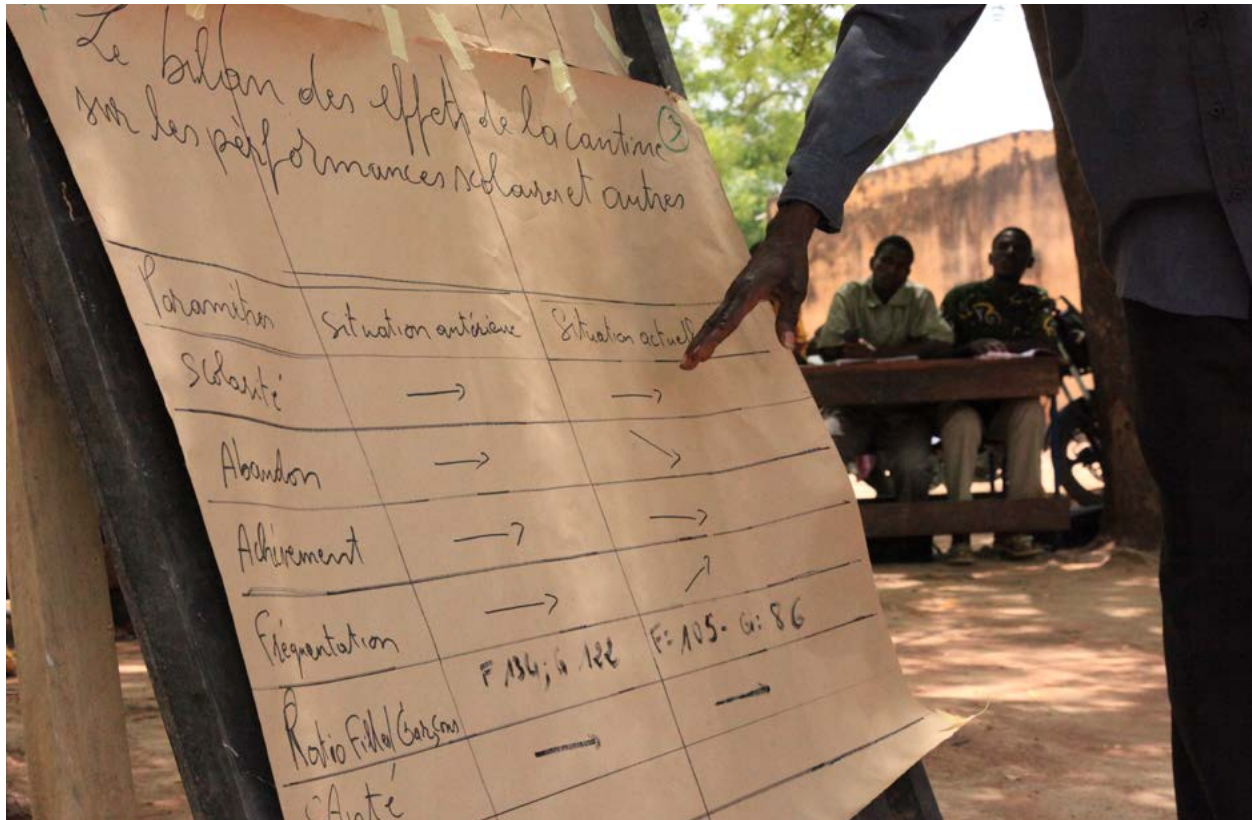 Le bilan des effets de la cantine ③
sur les performances scolaires et autres
Paramètres situation antérieure Situation actuell
Scolarité → →
Abandon → ↘
Achèvement → →
Fréquentation → ↗
Ratio Filles/Garçons F 134; G 122 F: 105- G: 86
Santé → →